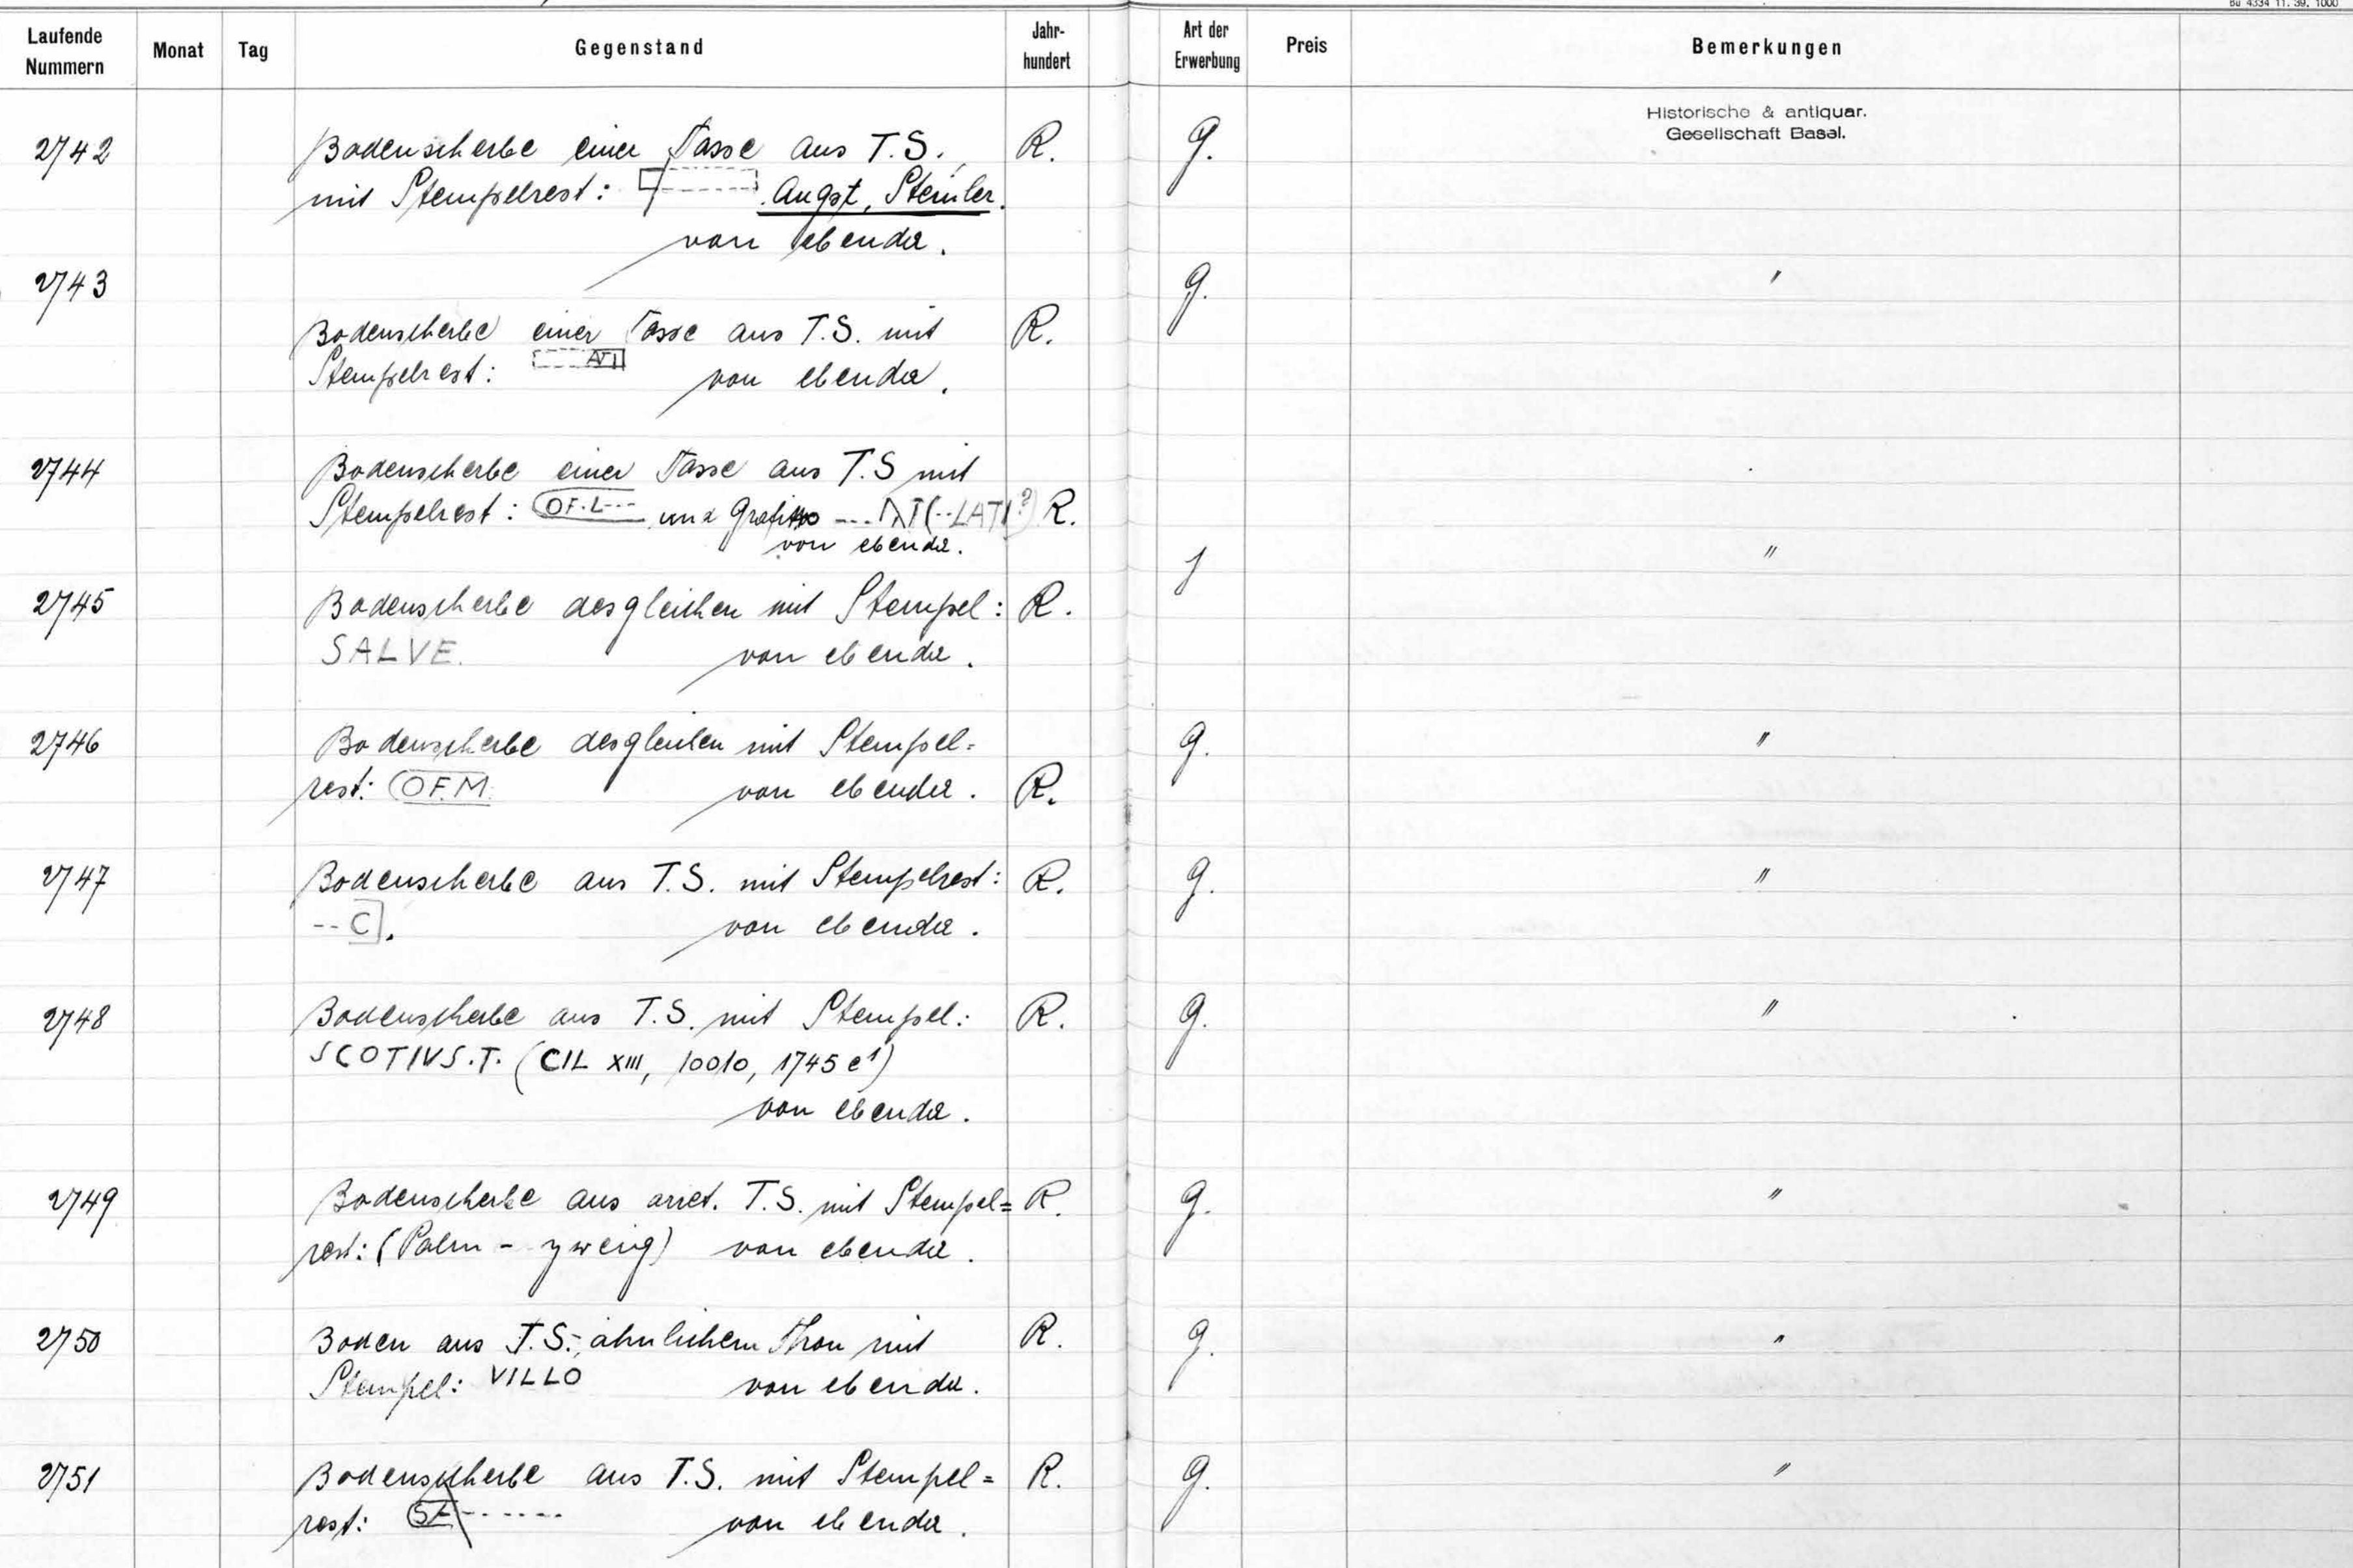 Bu 4334 11. 39. 1000
Laufende Nummern Monat Tag Gegenstand Jahr-hundert Art der Erwerbung Preis Bemerkungen
Historische & antiquar.
Gesellschaft Basel.
2742 Bodenscherbe einer Tasse aus T.S. R. g.
mit Stempelrest: Augst, Steinler.
von ebenda.
2743 g. "
Bodenscherbe einer Tasse aus T.S. mit R.
Stempelrest: von ebenda.
2744 Bodenscherbe einer Tasse aus T.S mit
Stempelrest: OF.L--- und Grafitto --- ΛT (--LATI?) R.
von ebenda. "
2745 Bodenscherbe desgleichen mit Stempel: R.
SALVE. von ebenda.
2746 Bodenscherbe desgleichen mit Stempel= g. "
rest: OF.M. von ebenda. R.
2747 Bodenscherbe aus T.S. mit Stempelrest: R. g. "
--C. von ebenda.
2748 Bodenscherbe aus T.S. mit Stempel: R. g. "
SCOTIVS.T. (CIL XIII, 10010, 1745 e¹)
von ebenda.
2749 Bodenscherbe aus arret. T.S. mit Stempel= R. g. "
rest: (Palm - zweig) von ebenda.
2750 Boden aus T.S.-ähnlichem Thon mit R. g. "
Stempel: VILLO von ebenda.
2751 Bodenscherbe aus T.S. mit Stempel= R. g. "
rest: von ebenda.